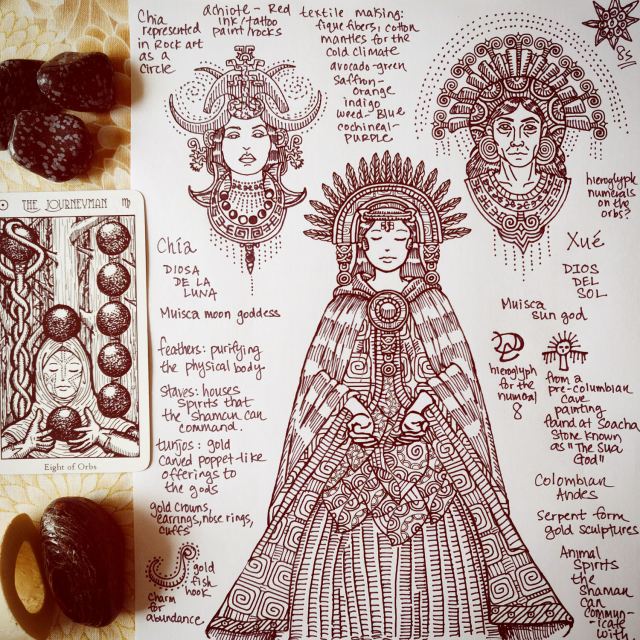 Chia
represented
in Rock art
as a
circle
achiote - Red
ink/tattoo
paint/rocks
textile making:
fique fibers, cotton
mantles for the
cold climate
avocado-green
saffron-
orange
indigo
weed-Blue
cochineal-
purple
8s
hieroglyph
numerals
on the
orbs?
THE JOURNEYMAN
Eight of Orbs
Chía
DIOSA
DE LA
LUNA
Muisca moon goddess
feathers: purifying
the physical body
staves: houses
spirits that
the Shaman can
command.
tunjos: gold
carved poppet-like
offerings to
the gods
gold crowns,
earrings, nose rings,
cuffs
gold
fish
hook
charm
for
abundance
Xué
DIOS
DEL
SOL
Muisca
sun god
hieroglyph
for the
numeral
8
from a
pre-columbian
cave
painting
found at Soacha
Stone known
as "The Sua
God"
Colombian
Andes
Serpent form
gold sculptures
Animal
Spirits
the
shaman
can
commun-
icate
with